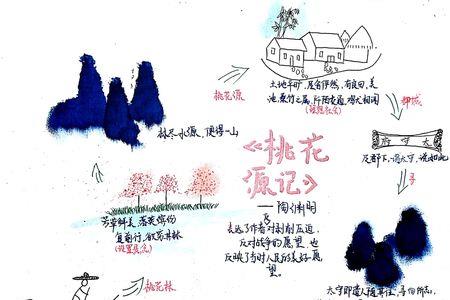 桃花源
土地平旷,屋舍俨然,有良田,美
池,桑竹之属,阡陌交通,鸡犬相闻
(理想社会)
郡城
太守府
及郡下,诣太守,说如此
寻
林尽水源,便得一山
《桃花
源记》
——陶渊明
表达了作者对剥削压迫,
反对战争的愿望,也
反映了当时人民的美好愿
望。
芳草鲜美,落英缤纷
复前行,欲穷其林
桃花林
太守即遣人随其往,寻向所志,